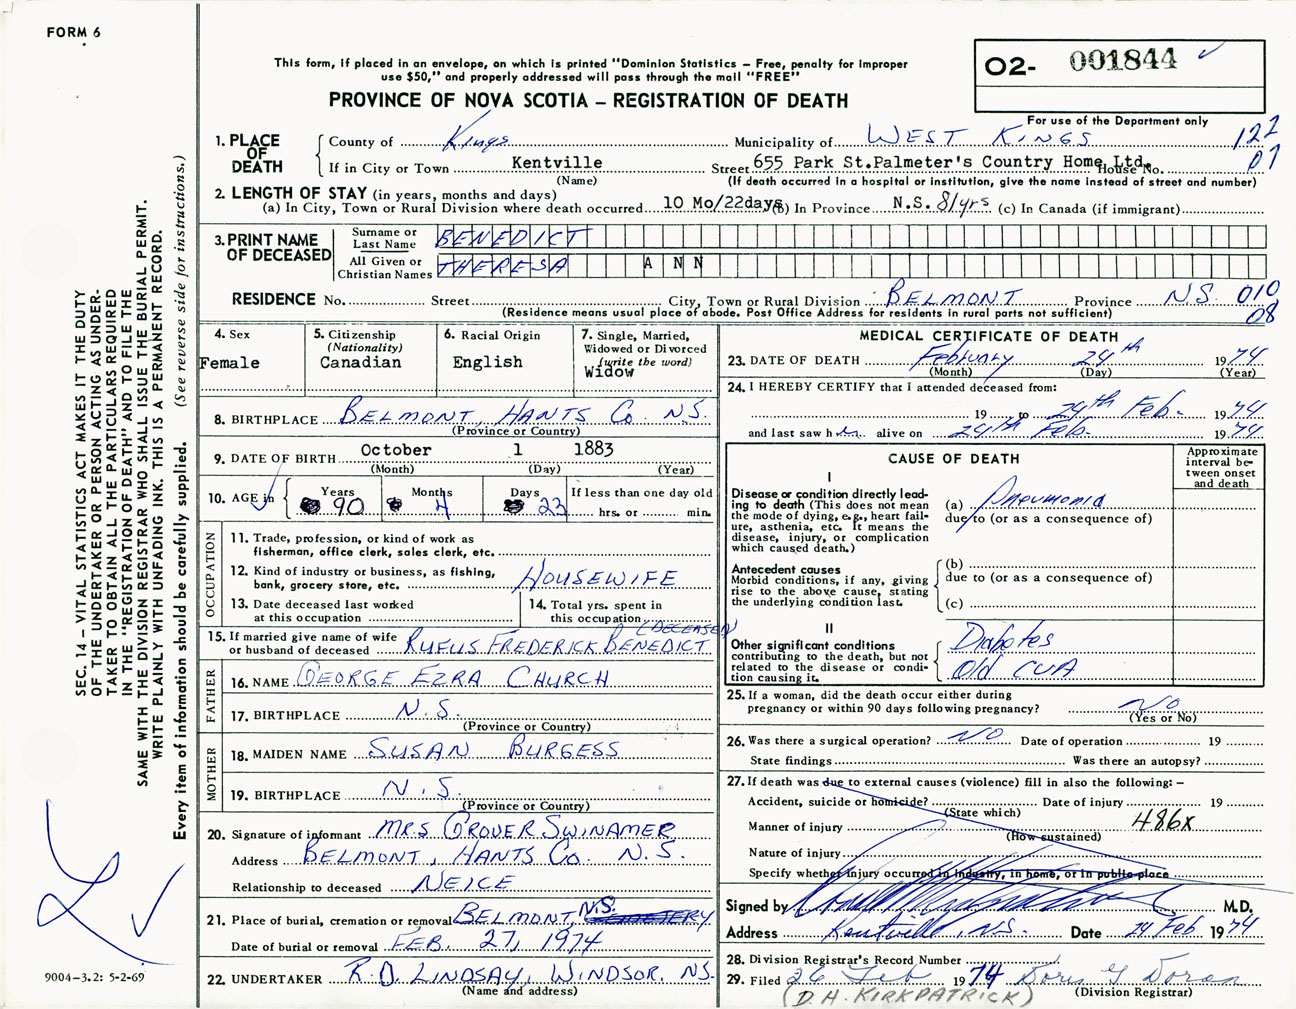 FORM 6
This form, if placed in an envelope, on which is printed "Dominion Statistics – Free, penalty for improper
use $50," and properly addressed will pass through the mail "FREE"
PROVINCE OF NOVA SCOTIA – REGISTRATION OF DEATH
02- 001844
For use of the Department only
SEC. 14 – VITAL STATISTICS ACT MAKES IT THE DUTY
OF THE UNDERTAKER OR PERSON ACTING AS UNDER-
TAKER TO OBTAIN ALL THE PARTICULARS REQUIRED
IN THE "REGISTRATION OF DEATH" AND TO FILE THE
SAME WITH THE DIVISION REGISTRAR WHO SHALL ISSUE THE BURIAL PERMIT.
WRITE PLAINLY WITH UNFADING INK. THIS IS A PERMANENT RECORD.
Every item of information should be carefully supplied. (See reverse side for instructions.)
1. PLACE OF DEATH
County of Kings Municipality of WEST KINGS 122
If in City or Town Kentville Street 655 Park St. Palmeter's Country Home, Ltd. House No. 07
(Name) (If death occurred in a hospital or institution, give the name instead of street and number)
2. LENGTH OF STAY (in years, months and days)
(a) In City, Town or Rural Division where death occurred 10 Mo/22days (b) In Province N.S. 81yrs (c) In Canada (if immigrant)
3. PRINT NAME OF DECEASED
Surname or Last Name BENEDICT
All Given or Christian Names THERESA ANN
RESIDENCE No. Street City, Town or Rural Division BELMONT Province N.S. 010
(Residence means usual place of abode. Post Office Address for residents in rural parts not sufficient) 08
4. Sex
Female
5. Citizenship
(Nationality)
Canadian
6. Racial Origin
English
7. Single, Married,
Widowed or Divorced
(write the word)
Widow
8. BIRTHPLACE BELMONT, HANTS Co. N.S.
(Province or Country)
9. DATE OF BIRTH October 1 1883
(Month) (Day) (Year)
10. AGE in Years 90 Months 4 Days 23 If less than one day old
hrs. or min.
OCCUPATION
11. Trade, profession, or kind of work as
fisherman, office clerk, sales clerk, etc.
12. Kind of industry or business, as fishing,
bank, grocery store, etc. HOUSEWIFE
13. Date deceased last worked
at this occupation
14. Total yrs. spent in
this occupation
(DECEASED)
15. If married give name of wife
or husband of deceased RUFUS FREDERICK BENEDICT
FATHER
16. NAME GEORGE EZRA CHURCH
17. BIRTHPLACE N.S.
(Province or Country)
MOTHER
18. MAIDEN NAME SUSAN BURGESS
19. BIRTHPLACE N.S.
(Province or Country)
20. Signature of informant MRS GROVER SWINAMER
Address BELMONT, HANTS Co. N.S.
Relationship to deceased NEICE
21. Place of burial, cremation or removal BELMONT, N.S. CEMETERY
Date of burial or removal FEB. 27, 1974
22. UNDERTAKER R.D. LINDSAY, WINDSOR. NS.
(Name and address)
9004–3.2: 5-2-69
MEDICAL CERTIFICATE OF DEATH
23. DATE OF DEATH February 24th 1974
(Month) (Day) (Year)
24. I HEREBY CERTIFY that I attended deceased from:
19 to 24th Feb. 1974
and last saw her alive on 24th Feb. 1974
CAUSE OF DEATH
Approximate
interval be-
tween onset
and death
I
Disease or condition directly lead-
ing to death (This does not mean
the mode of dying, e.g., heart fail-
ure, asthenia, etc. It means the
disease, injury, or complication
which caused death.)
(a) Pneumonia
due to (or as a consequence of)
Antecedent causes
Morbid conditions, if any, giving
rise to the above cause, stating
the underlying condition last.
(b)
due to (or as a consequence of)
(c)
II
Other significant conditions
contributing to the death, but not
related to the disease or condi-
tion causing it.
Diabetes
Old CVA
25. If a woman, did the death occur either during
pregnancy or within 90 days following pregnancy? NO
(Yes or No)
26. Was there a surgical operation? NO Date of operation 19
State findings Was there an autopsy?
27. If death was due to external causes (violence) fill in also the following: –
Accident, suicide or homicide? Date of injury 19
(State which)
Manner of injury 486x
(How sustained)
Nature of injury
Specify whether injury occurred in industry, in home, or in public place
Signed by M.D.
Address Kentville, N.S. Date 24 Feb 1974
28. Division Registrar's Record Number
29. Filed 26 Feb 1974 Doris G Doran
(D.H. KIRKPATRICK) (Division Registrar)